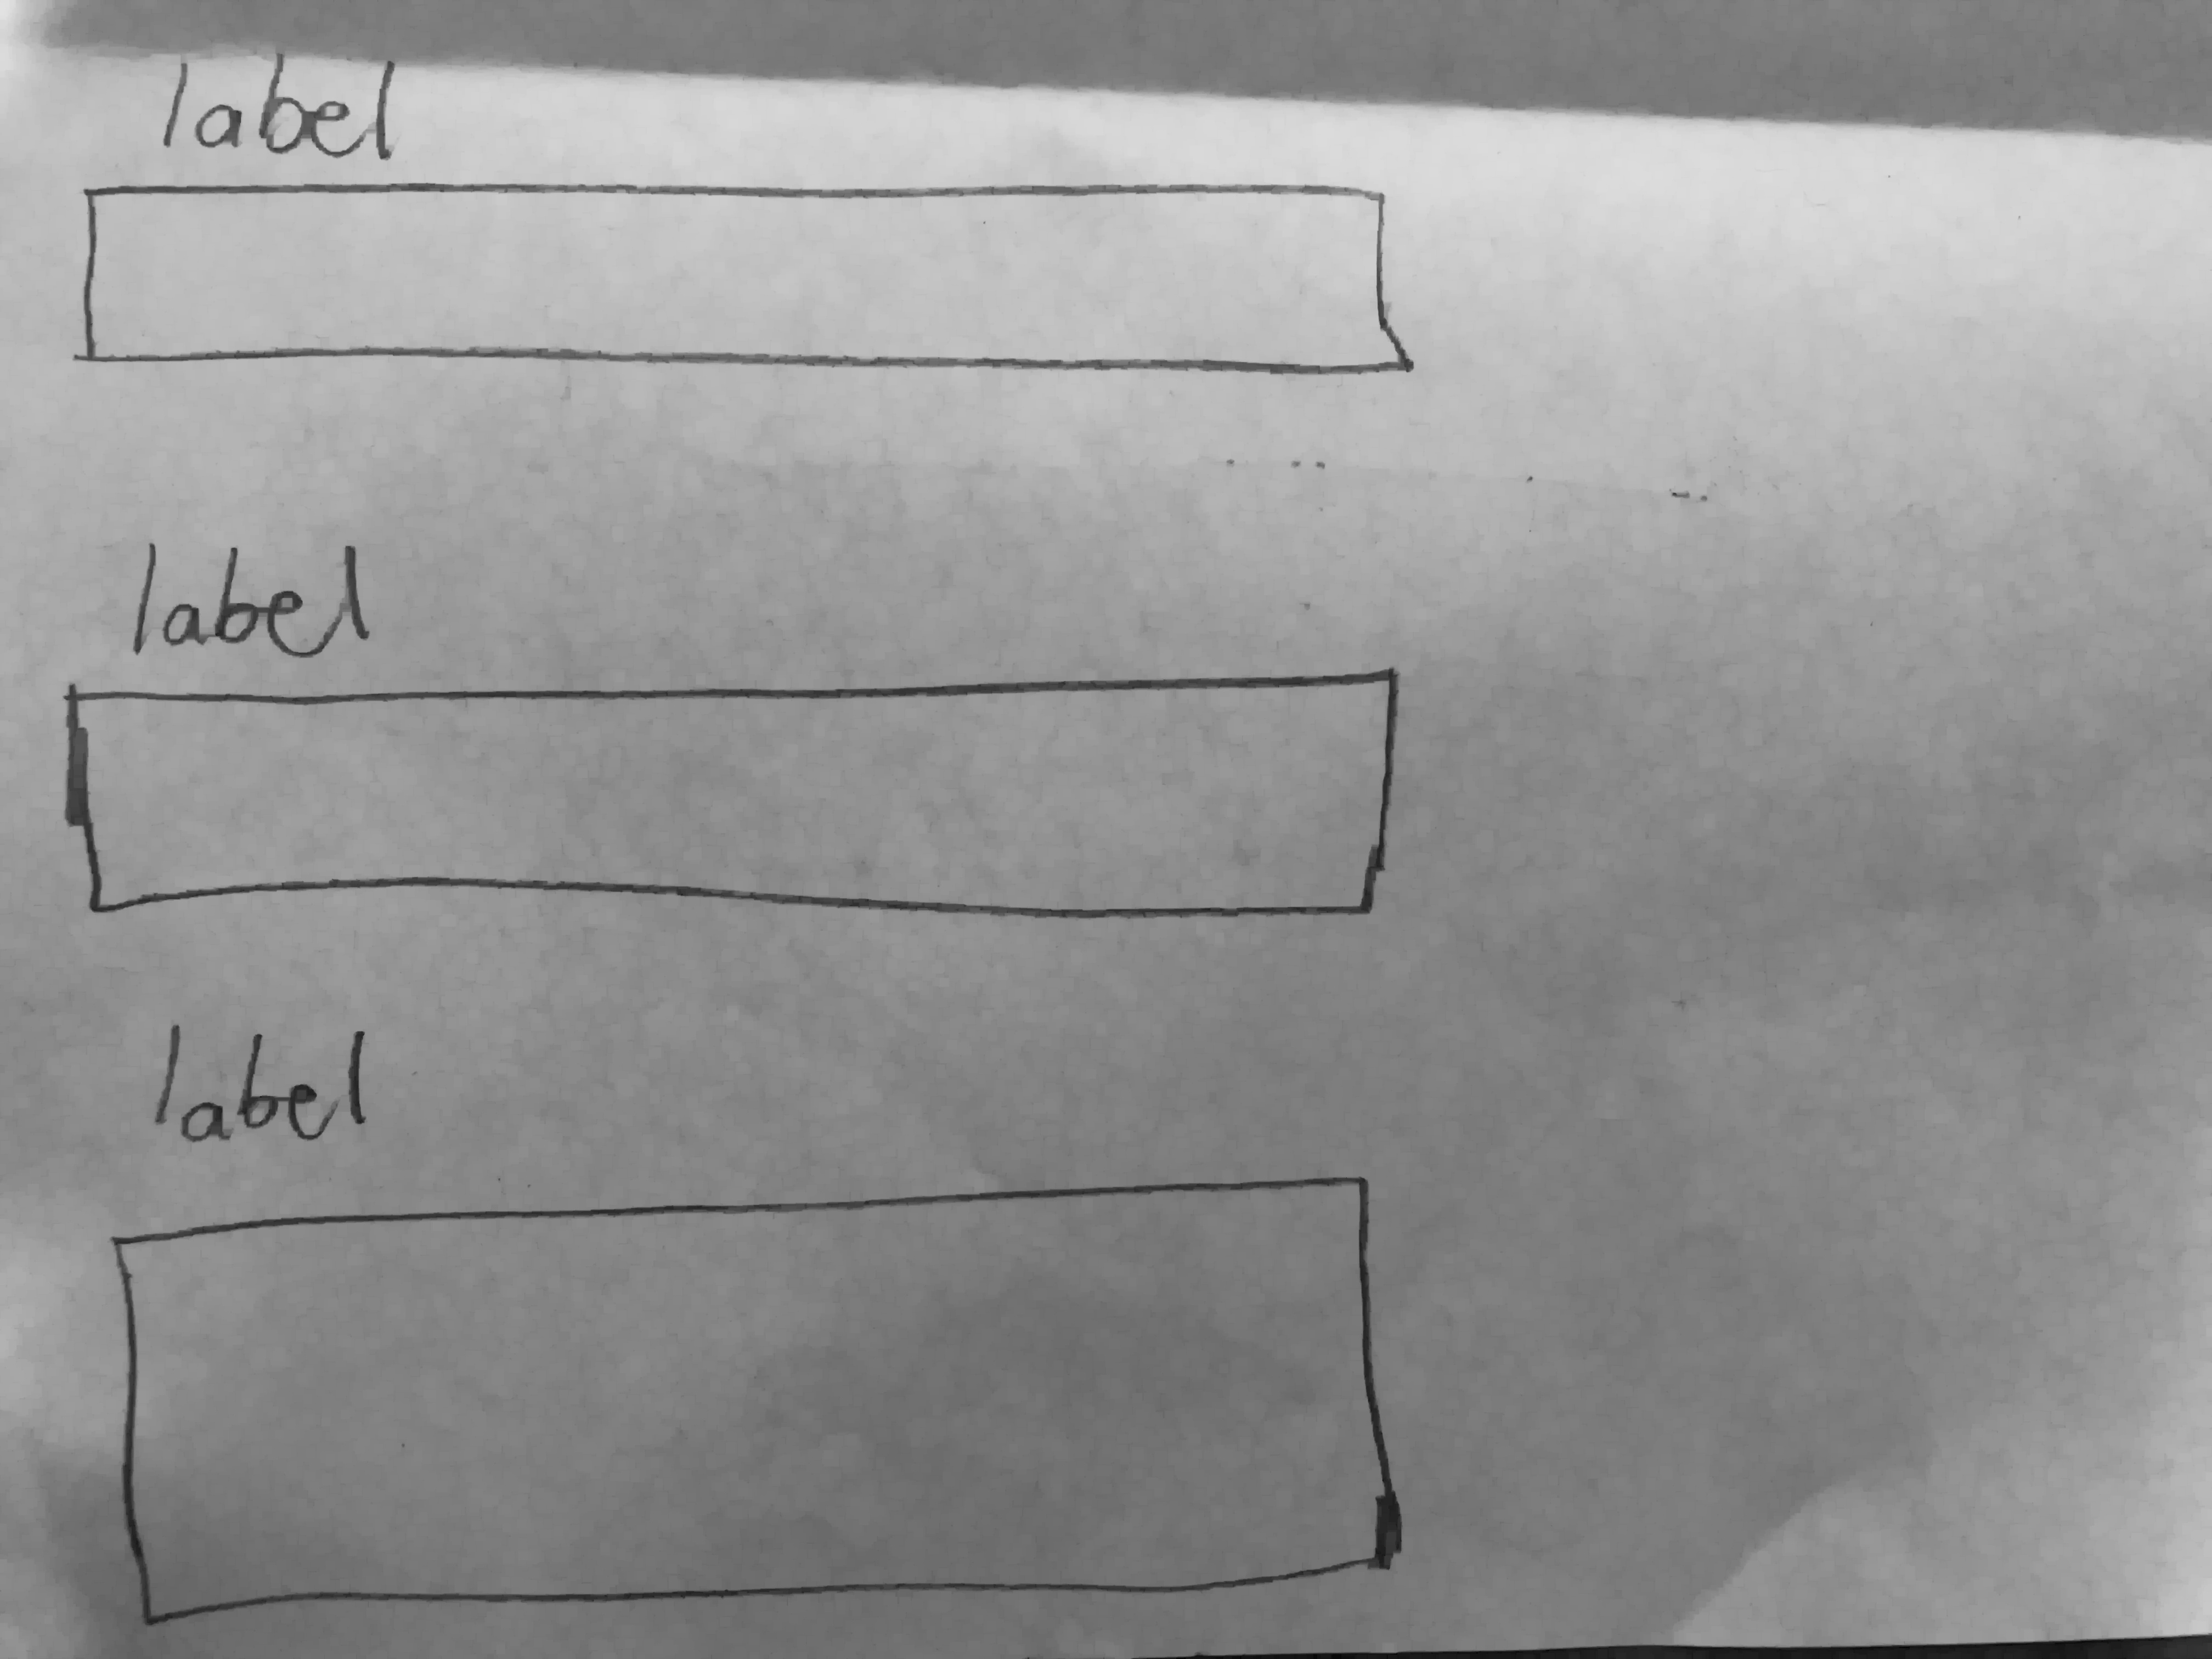 label
label
label